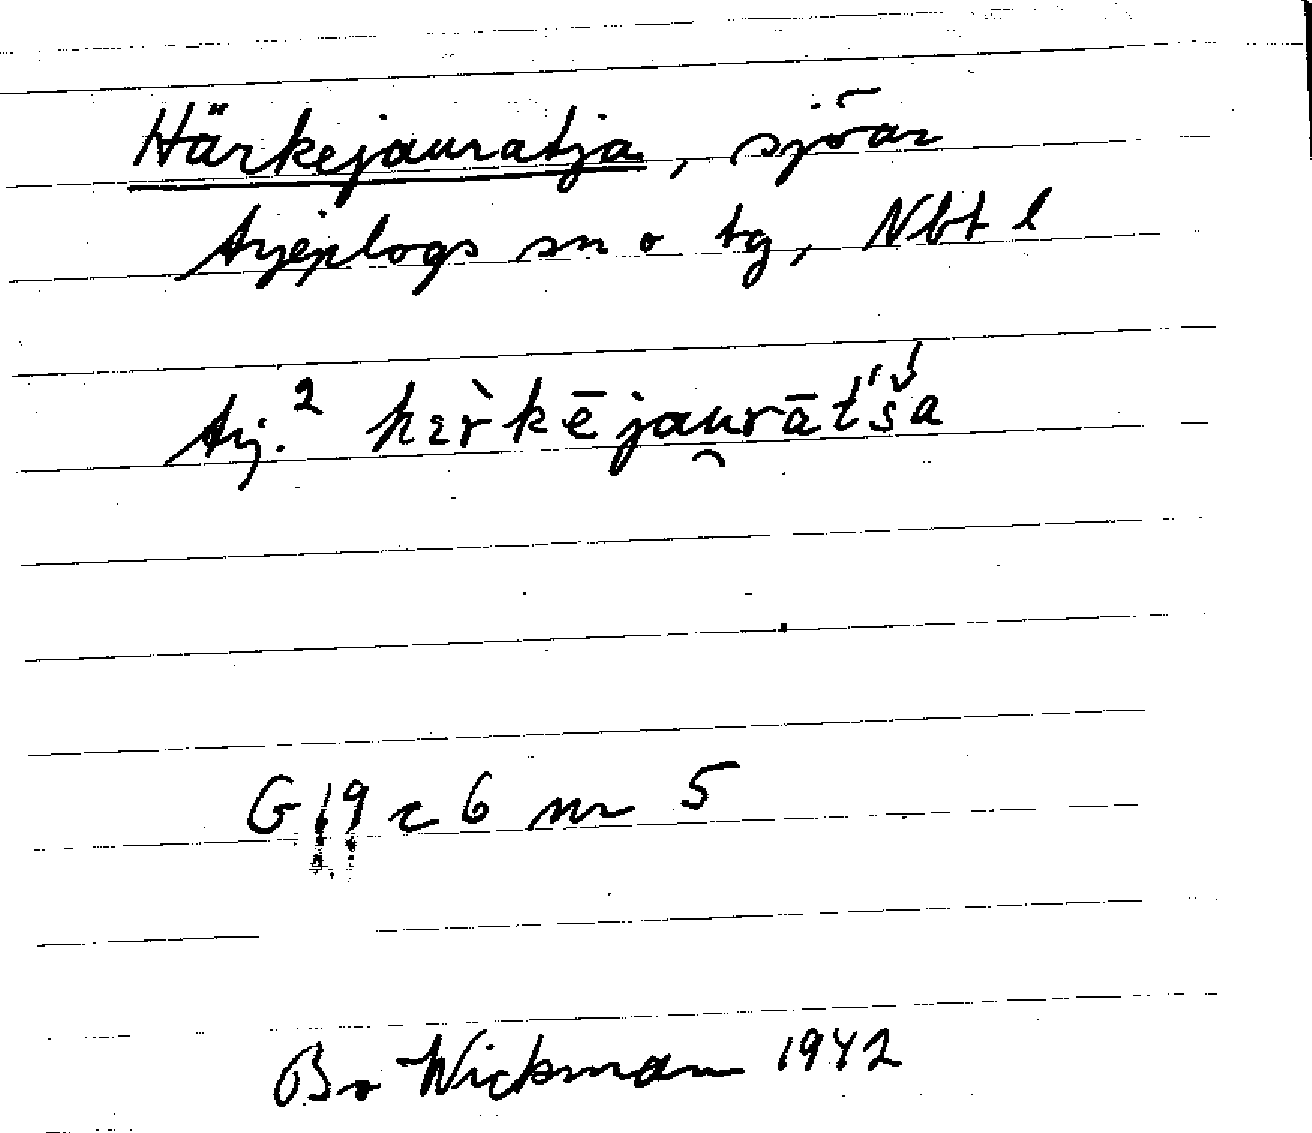 Härkejauratja, sjöar
Arjeplogs sn o tg, Nbt l
Arj.² hɛr̀kējau̯rātʹšʹa
G 19 c 6 nr 5
Bo Wickman 1942